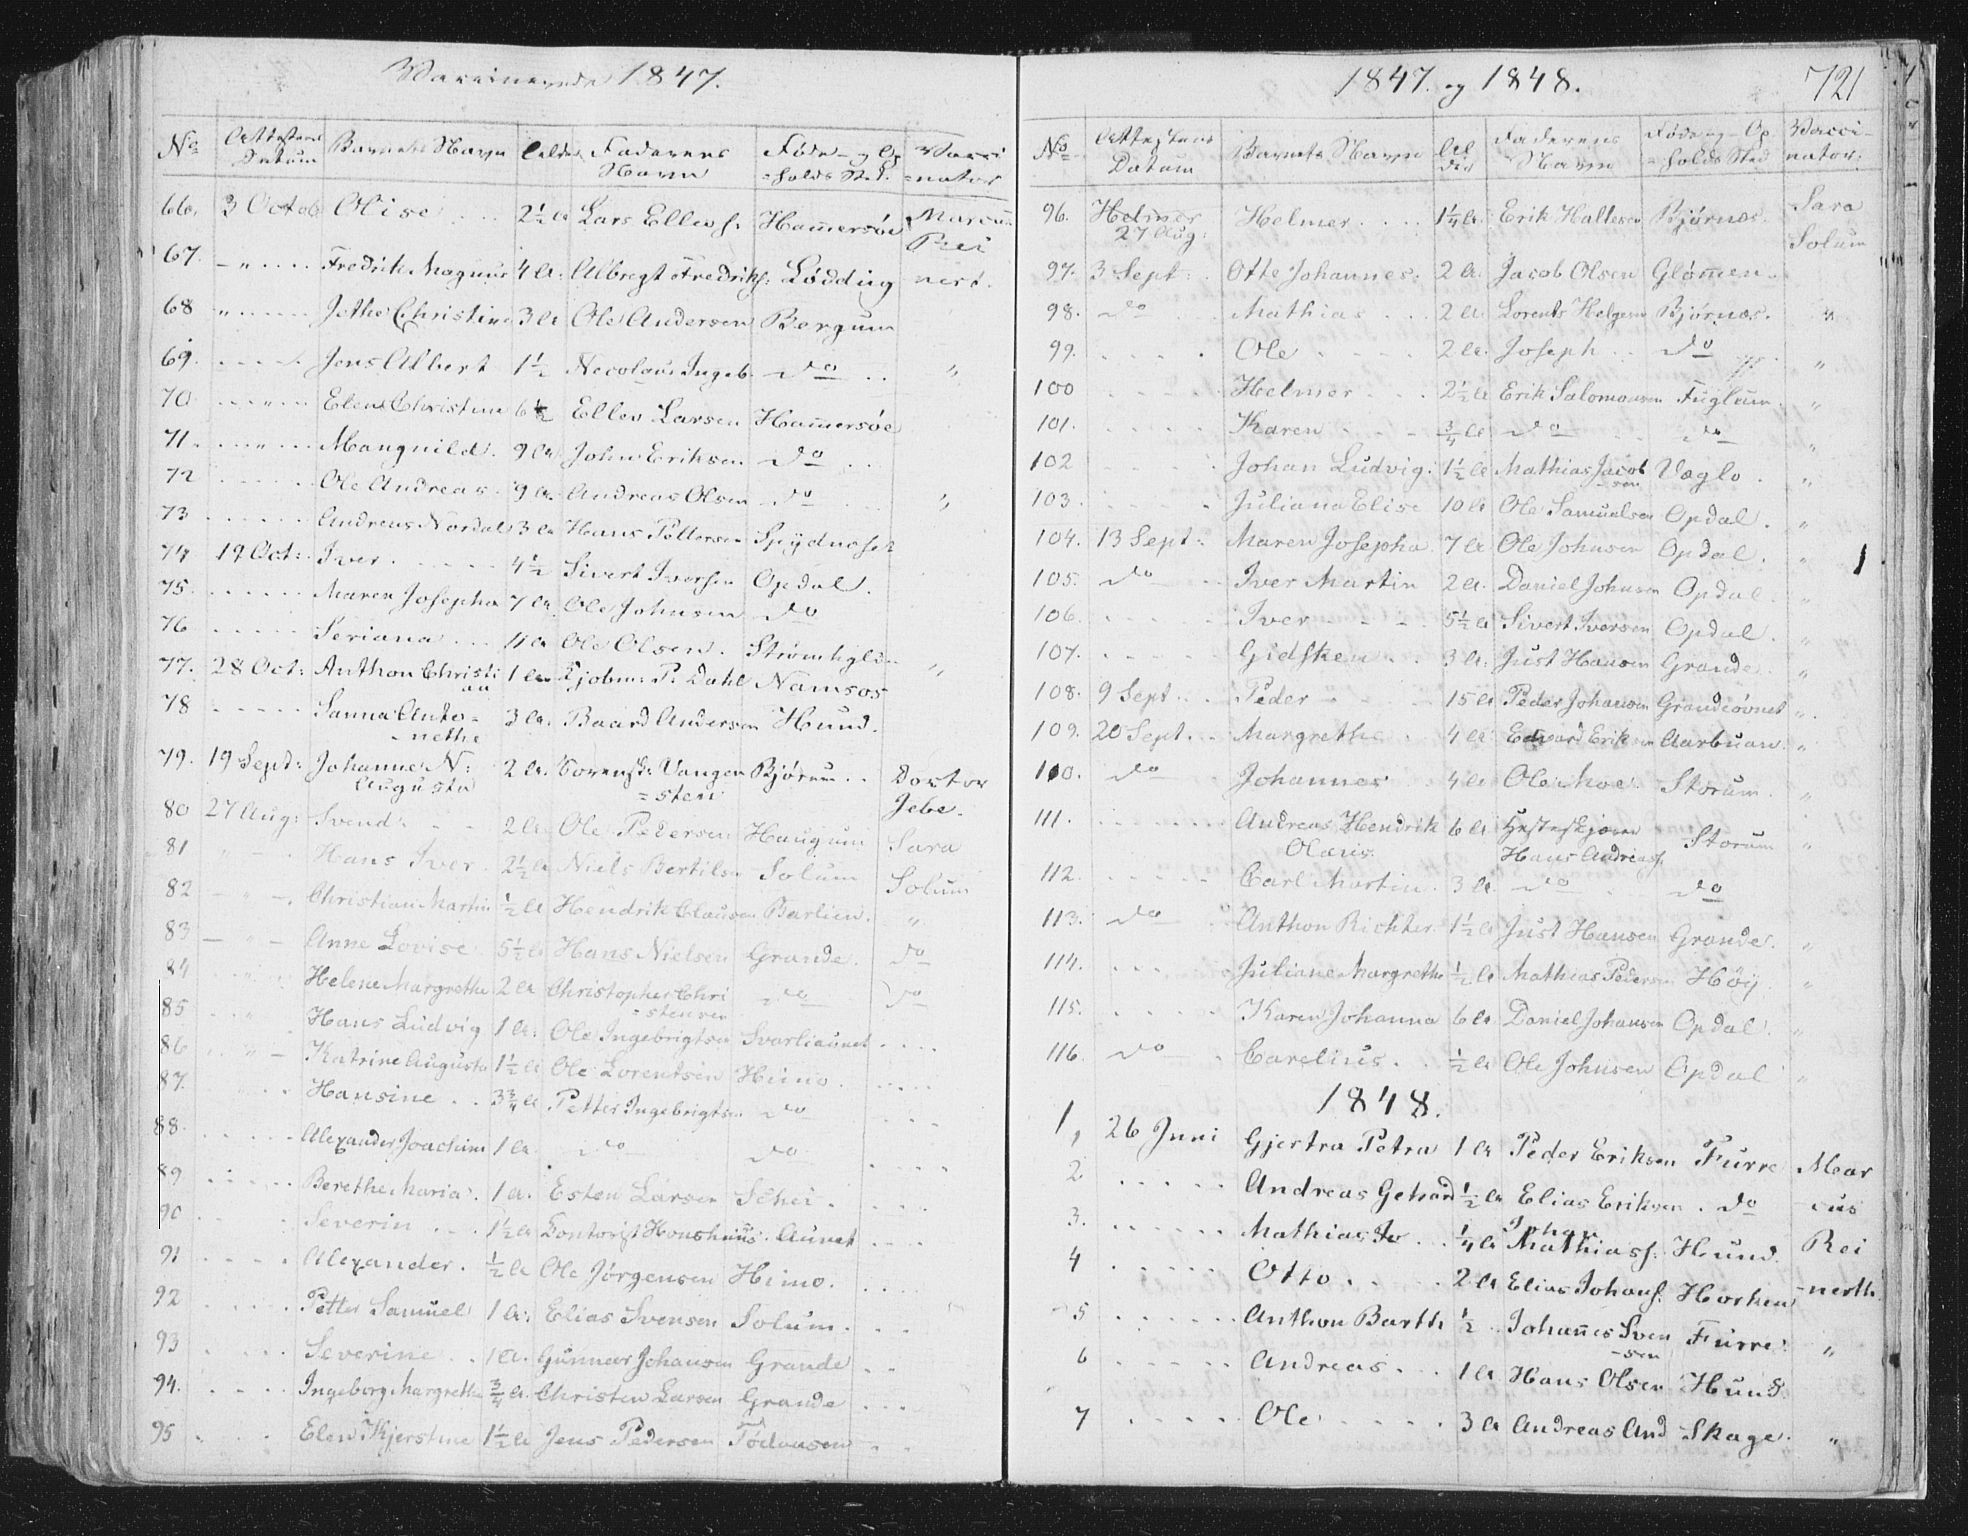 Vaccinerede 1847.
No Attestens Datum Barnets Navn Alder Faderens Navn Føde- og Op=holds Sted. Vacci=nator
66. 3 Octob Olise 2½ A Lars Ellevs. Ham̄ersøe Marcus
Rei
67. -"- Fredrik Magnus 4 A. Albregt Fredriks: Lødding nert.
68 " Jethe Christine 3 A Ole Andersen Bergum
69. Jens Albert 1½ Necolaus Ingeb. do "
70 Elen Christine 6½ Ellev Larsen Ham̄ersøe
71. " Mangnild. 9 A John Eriksen do
72 Ole Andreas. 9 A. Andreas Olsen do "
73 Andreas Nordal 3 A Hans Pettersen Spydneset
74 19 Oct: Iver 4½ Sivert Iversen Opdal.
75. Maren Josepha 7 A Ole Johnsen do
76 Seriana Ole Olsen.
77. 28 Oct: Anthon Christi 1 A P. Dahl Namsos "
an
78 Sanna Anto= 3 A. Baard Andersen Hund.
nethe
79. 19 Sept: Johanne N: 2 A. Vangen Bjørum Doctor
Augusta =sten Jebe.
80 27 Aug: Svend 2 A Ole Pedersen Haugum Sara
81 Hans Iver 2½ A Niels Bertilsen Solum Solum
82 Christian Martin ½ A Hendrik Clausen Barlien. "
83 Anne Lovise 5½ A Hans Nielsen Grande. do
84 Helene Margrethe 2 A Christopher Chri do do
=stensen
85 Hans Ludvig 1 A: Ole Ingebrigtsen Svarliaunet
86 Katrine Augusta 1½ A Ole Lorentsen Himo.
87. Hansine 3¾ A Petter Ingebrigtsen do
88. Alexander Joachim 1 A do do
89 Berethe Maria. 1 A. Esten Larsen Schei.
90 Severin 1½ A Aunet
91 Alexander. ½ A Ole Jørgensen Himo.
92 Petter Samuel 1 A: Elias Svensen Solum.
93 Severine 1 A. Gunnar Johansen Grande
94. Ingeborg Margrethe ¾ A. Christen Larsen Grande
95 Elen Kjerstine 1½ A Jens Pedersen
1847. og 1848. 721
No Attestens Datum Barnets Navn Alder Faderens Navn Føde og Op=holds Sted Vacci=nator:
96. Helmer Helmer 1¼ A. Erik Haltesen Bjørnæs. Sara
27 Aug: Solum
97. 3 Sept: Otte Johannes: 2 A. Jacob Olsen Gløm̄en.
98. do Mathias 2 A. Lorents Helgesen Bjørnæs. "
99. Ole 2 A. Joseph do "
100 Helmer 2½ A Erik Salomonsen Fuglum. "
101. Karen ¾ A do do "
102 Johan Ludvig. 1½ A Mathias Jacob Væglo. "
=sen
103. Juliana Elise 10 A Ole Samuelsen Opdal. "
104. 13 Sept: Maren Josepha 7 A Ole Johnsen Opdal. "
105. do Iver Martin 2 A. Daniel Johnsen Opdal. "
106. Iver 5½ A Sivert Iversen Opdal. "
107. Gidsken 3 A. Just Hansen Grande. "
108. 9 Sept. Peder 15 A Peder Johansen "
109. 20 Sept. Margrethe 4 A Edvard Eriksen "
110. do Johannes 4 A Ole Moe Storum. "
111. Andreas Hendrik 6 A Storum "
Olaus. Hans Andreas.
112. Carl Martin. 3 A. do do
113. do Anthon Richter 1½ A Just Hansen Grande. "
114. Juliane Margrethe ½ A Mathias Pedersen Høÿ "
115. Karen Johanna 6 A Daniel Johansen Opdal. "
116. do Carelius. ½ A Ole Johnsen Opdal "
1848.
1, 26 Juni Gjertra Petra 1 A Peder Eriksen Furre Mar
2 Andreas Gehard ½ A Elias Eriksen. do cus
3. Mathias Jo ¼ A Johan Mathiass: Hund. Rei
4 Otto 2 A Elias Johans. -nerth.
5 Anthon Barth ½ Johan̄es Sven Furre. "
-sen
6 Andreas 1 A Hans Olsen Hund.
7 Ole 3 A Andreas And Skage. "